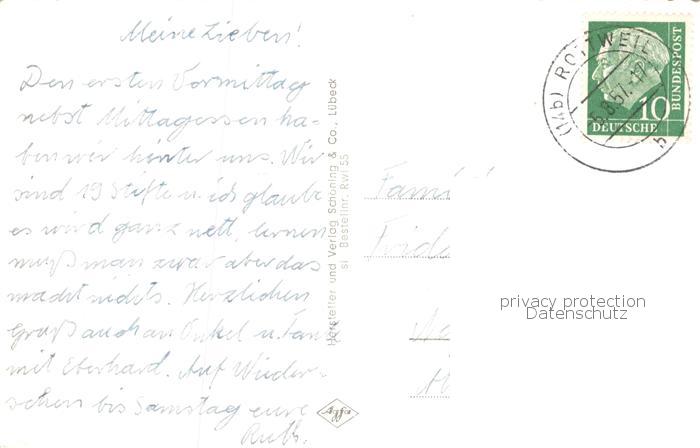 Meine Lieben!
Den ersten Vormittag
nebst Mittagessen ha-
ben wir hinter uns. Wir
sind 19 Stifte u. ich glaube
es wird ganz nett, lernen
muß man zwar aber das
macht nichts. Herzlichen
Gruß auch an Onkel u. Tante
mit Eberhard. Auf Wieder-
sehen bis Samstag eure
Ruth.
Hersteller und Verlag Schöning & Co., Lübeck
si Bestellnr. Rwl 55
Agfa
(14b) ROTTWEIL
.8.57.-17
b
10
DEUTSCHE
BUNDESPOST
Fami
Frida
privacy protection
Datenschutz